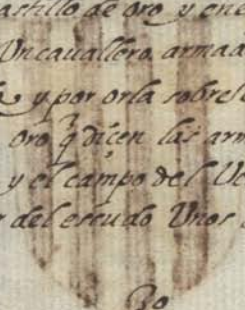 astillo de oro y en e
Un cavallero armad
y por orla sobre l
oro q̃ dicen las arm
y el campo del Us
del escudo Unos
30